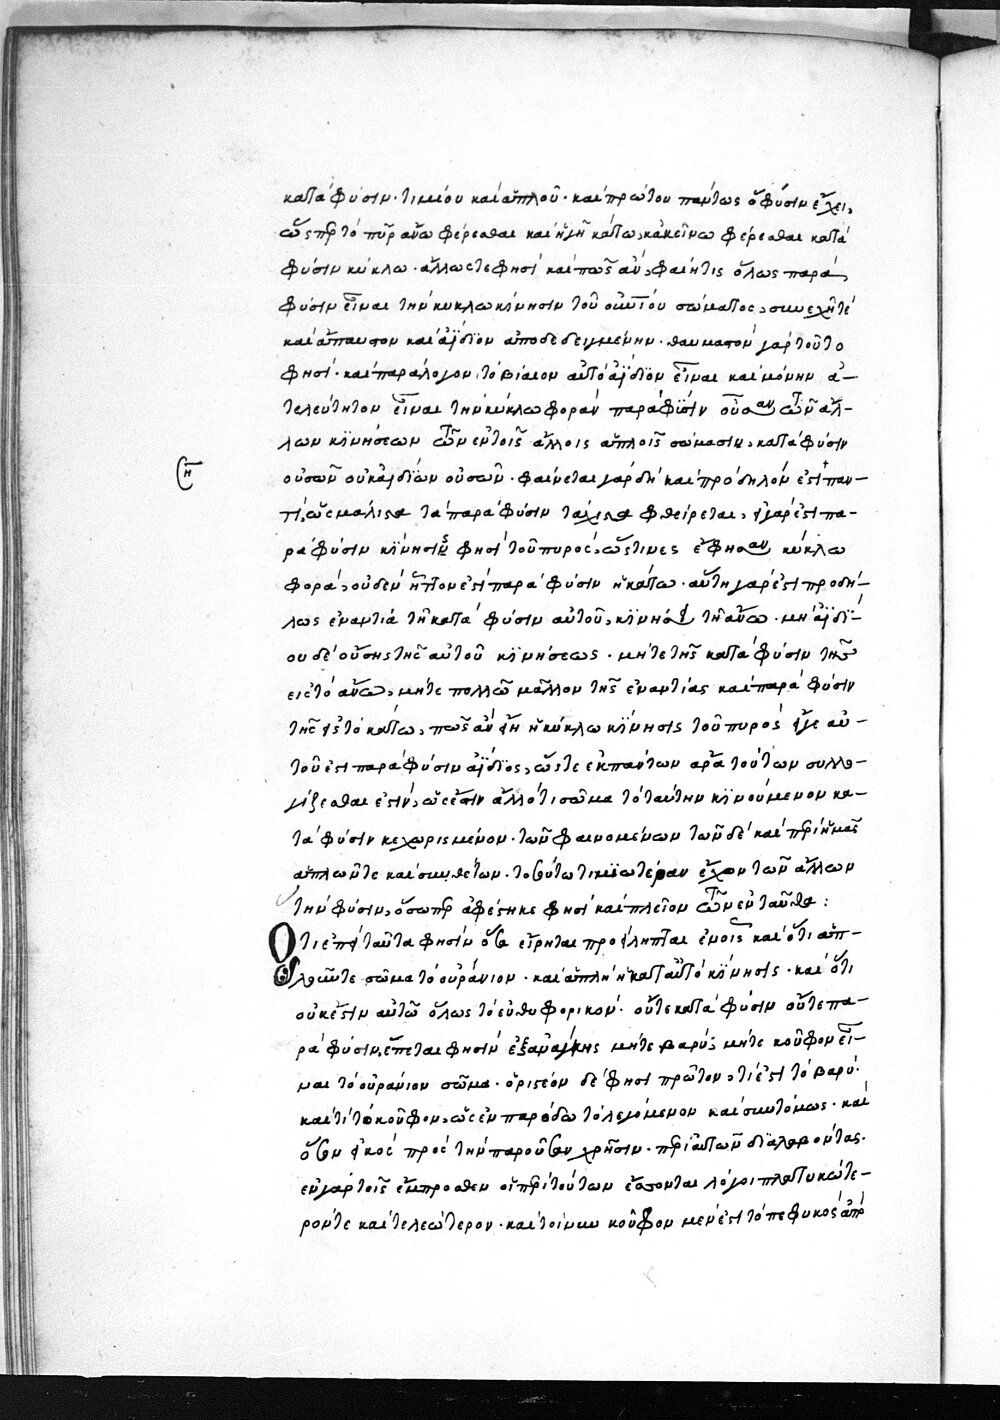 κατὰ φύσιν· τιμίου καὶ ἁπλοῦ· καὶ πρώτου πάντως ὁ φύσιν ἔχει,
ὥσπερ τὸ πῦρ ἄνω φέρεσθαι καὶ ἡ γῆ κάτω, κἀκείνω φέρεσθαι κατὰ
φύσιν κύκλω· ἄλλως τε φησὶ καὶ πῶς ἂν, φαίη τις ὅλως παρὰ
φύσιν εἶναι τὴν κύκλω κίνησιν τοῦ οὐνίου σώματος, συνεχῆ τὲ
καὶ ἄπαυστον καὶ ἀΐδιον ἀποδεδειγμένην· θαυμαστὸν γὰρ τοῦτο
φησὶ· καὶ παράλογον, τὸ βίαιον αὐτὸ ἀΐδιον εἶναι καὶ μόνην ἀ-
τελεύτητον εἶναι τὴν κύκλω φορὰν παρὰ φύσιν οὖσαν τῶν ἄλ-
λων κινήσεων τῶν ἐν τοῖς ἄλλοις ἁπλοῖς σώμασιν, κατὰ φύσιν
οὐσῶν οὐκ ἀϊδίων οὐσῶν· φαίνεται γὰρ δὴ καὶ πρόδηλον ἐστὶ παν-
τί, ὡς μάλιστα τὰ παρὰ φύσιν τάχιστα φθείρεται, εἰ γάρ ἐστι πα-
ρὰ φύσιν κίνησις φησὶ τοῦ πυρὸς, ὥς τινες ἔφησαν κύκλω
φορὰ, οὐδὲν ἧττον ἐστὶ παρὰ φύσιν ἢ κάτω· αὕτη γάρ ἐστι προδή-
λως ἐναντία τῆ κατὰ φύσιν αὐτοῦ, κινήσει τῆ ἄνω· μὴ ἀϊδί-
ου δὲ οὔσης τῆς αὐτοῦ κινήσεως· μήτε τῆς κατὰ φύσιν τῆς
εἰς τὸ ἄνω, μήτε πολλῶ μᾶλλον τῆς ἐναντίας καὶ παρὰ φύσιν
τῆς εἰς τὸ κάτω, πῶς ἂν εἴη ἡ κύκλω κίνησις τοῦ πυρὸς εἴγε αὐ-
τοῦ ἐστι παρὰ φύσιν ἀΐδιος, ὥστε ἐκ πάντων ἄρα τούτων συλλο-
γίζεσθαι ἐστὶν, ὡς ἔστιν ἄλλό τι σῶμα τὸ ταύτην κινούμενον κα-
τὰ φύσιν κεχωρισμένον· τῶν φαινομένων τῶνδε καὶ περὶ ἡμᾶς
ἁπλῶν τε καὶ συνθέτων· τοσούτω τιμιωτέραν ἔχον τῶν ἄλλων
τὴν φύσιν, ὅσωπερ ἀφέστηκε φησὶ καὶ πλεῖον τῶν ἐνταῦθα:
Ὅτι ἐπεὶ ταῦτα φησὶν ὅσα εἴρηται προείληπται ἐν οἷς καὶ ὅτι ἁπ-
λοῦν τε σῶμα τὸ οὐράνιον· καὶ ἁπλῆ ἡ κατ' αὐτὸ κίνησις· καὶ ὅτι
οὐκ ἔστιν αὐτῶ ὅλως τὸ εὐθυφορικόν· οὔτε κατὰ φύσιν οὔτε πα-
ρὰ φύσιν, ἕπεται φησὶν ἐξ ἀνάγκης μήτε βαρύς μήτε κοῦφον εἶ-
ναι τὸ οὐράνιον σῶμα· ὁριστέον δὲ φησὶ πρῶτον, τί ἐστι τὸ βαρύ·
καὶ τί τὸ κοῦφον, ὡς ἐν παρόδω τὸ λεγόμενον καὶ συντόμως· καὶ
ὅσον εἰκὸς πρὸς τὴν παροῦσαν χρῆσιν· περὶ αὐτῶν διαλαβόντας·
ἐν γὰρ τοῖς ἔμπροσθεν οἱ περὶ τούτων ἔσονται λόγοι πλατυκώτε-
ρόν τε καὶ τελεώτερον· καὶ τοίνυν κοῦφον μέν ἐστι τὸ πεφυκὸς ἀπὸ